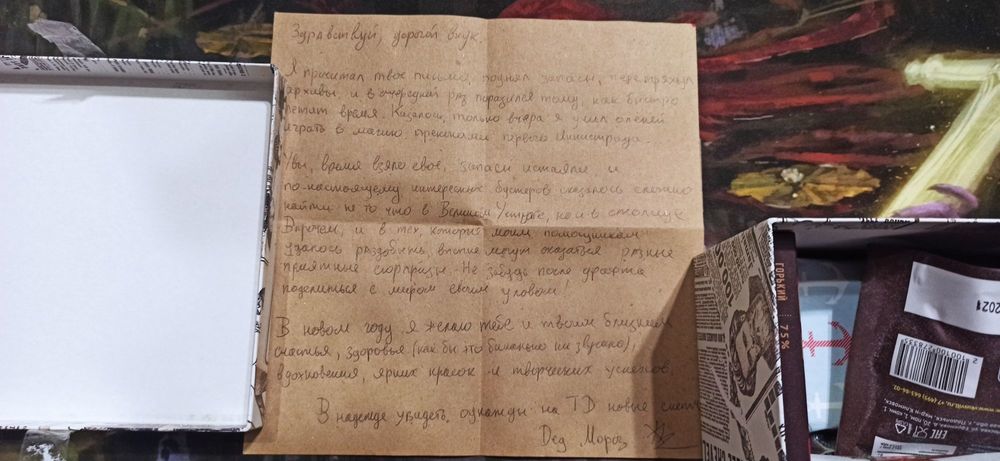 Здравствуй, дорогой внук.
Я прочитал твое письмо, поднял запасы, перетряхнул
архивы и в очередной раз поразился тому, как быстро
летит время. Казалось, только вчера я учил оленей
играть в магию преконами первого Иннистрада.
Увы, время взяло своё, запасы истаяли и
по-настоящему интересных бустеров оказалось сложно
найти не то что в Великом Устюге, но и в столицах
Впрочем, и в тех, которые моим помощникам
удалось раздобыть, вполне могут оказаться разные
приятные сюрпризы. Не забудь после драфта
поделиться с миром своим уловом!
В новом году я желаю тебе и твоим близким
счастья, здоровья (как бы это банально ни звучало),
вдохновения, ярких красок и творческих успехов.
В надежде увидеть однажды на TD новые
Дед Мороз
ГОРЬКИЙ 75%
2021